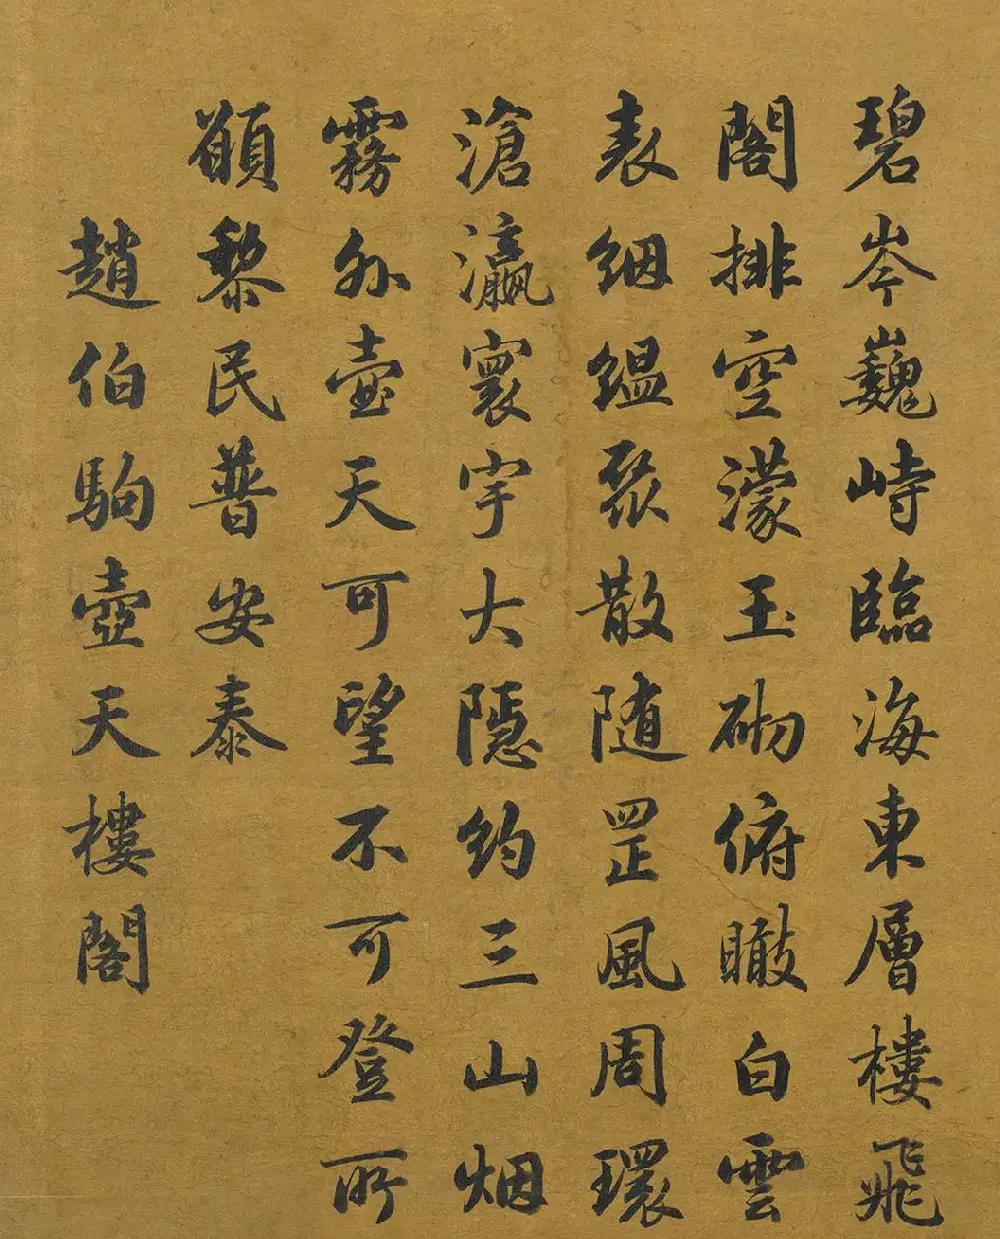 碧岑巍峙臨海東層樓飛
閣排空濛玉砌俯瞰白雲
表絪縕聚散随罡風周環
滄瀛寰宇大隱約三山烟
霧外壺天可望不可登所
願黎民普安泰
趙伯駒壺天樓閣